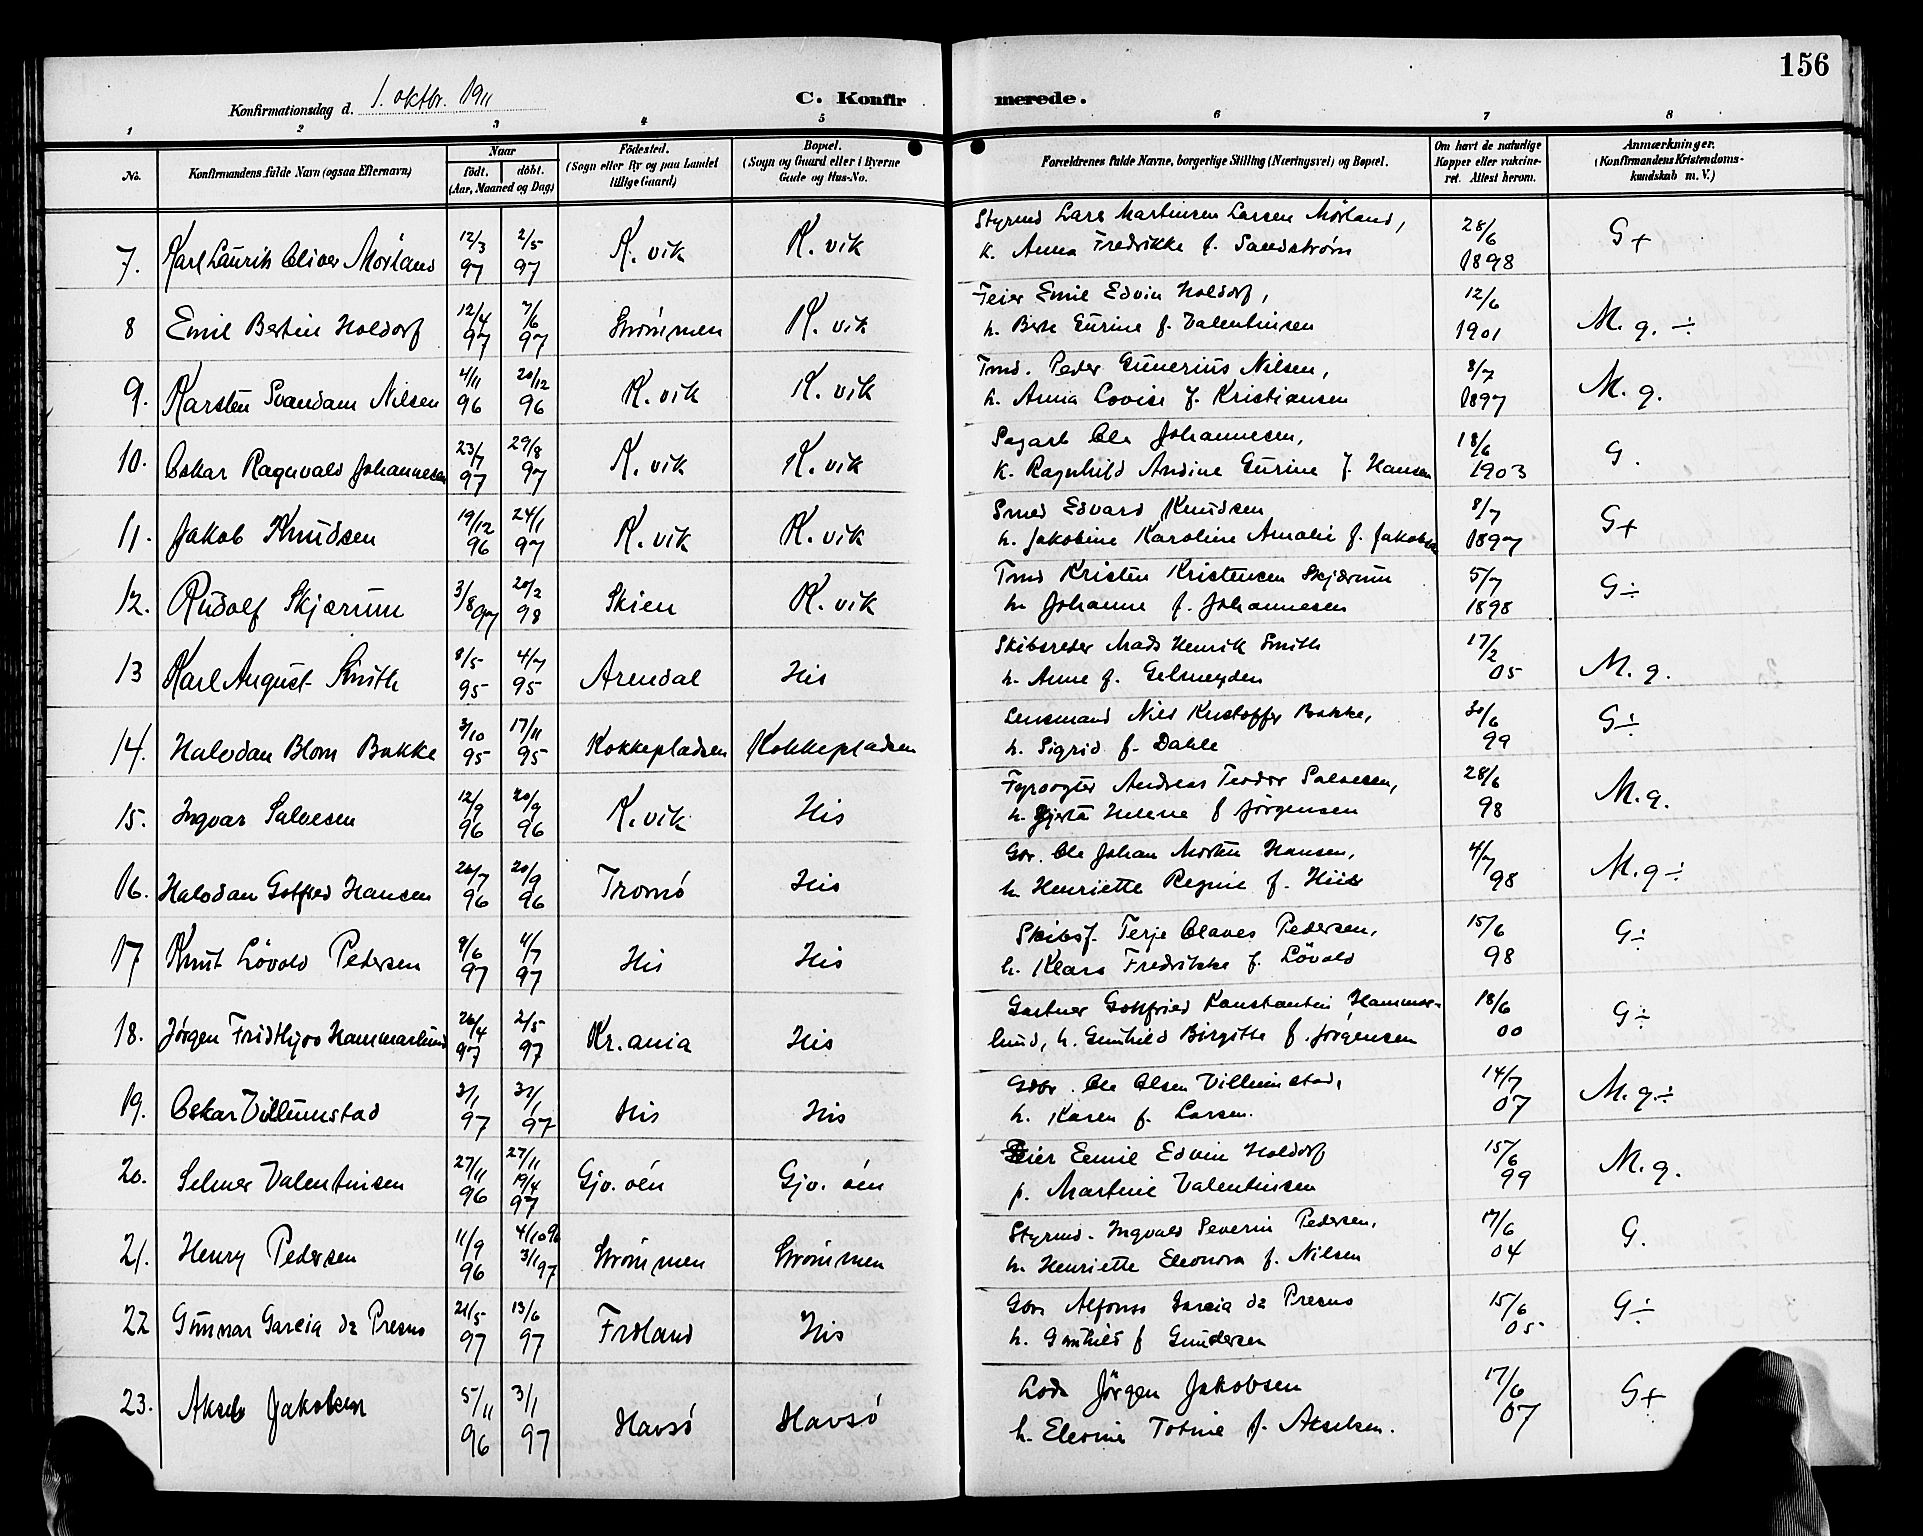 156
Konfirmationsdag d. 1. oktbr. 1911
C. Konfirmerede.
1 2 3 4 5 6 7 8
No.
Konfirmandens fulde Navn (ogsaa Efternavn)
Naar
födt. döbt.
(Aar, Maaned og Dag)
Födested.
(Sogn eller By og paa Landet
tillige Gaard)
Bopæl.
(Sogn og Gaard eller i Byerne
Gade og Hus-No.
Forældrenes fulde Navne, borgerlige Stilling (Næringsvei) og Bopæl.
Om havt de naturlige
Kopper eller vakcine-
ret. Attest herom.
Anmærkninger.
(Konfirmandens Kristendoms-
kundskab m. V.)
7. Karl Laurits Oliver Mörland 12/3 97 2/5 97 K.vik K.vik Styrmd Lars Martinsen Larsen Mörland, 28/6 1898 G+
h. Anna Fredrikke f. Sandström
8 Emil Bertin Holdorf 12/4 97 7/6 97 Strömmen K.vik Feier Emil Edvin Holdorf, 12/6 1901 M.g.÷
h. Berte Gurine f. Valentinsen
9. Karsten Svendam Nilsen 4/11 96 20/12 96 K.vik K.vik Tmd. Peder Gunerius Nilsen, 8/7 1897 M.g.
h. Anna Lovise f. Kristiansen
10. Oskar Ragnvald Johannesen 23/7 97 29/8 97 K.vik K.vik Sagarb Ole Johannesen, 18/6 1903 G.
h. Ragnhild Andine Gurine f. Hansen
11. Jakob Knudsen 19/12 96 24/1 97 K.vik K.vik Smed Edvard Knudsen 8/7 1897 G+
h. Jakobine Karoline Amalie f. Jakobsen
12. Rudolf Skjærum 3/8 97 20/2 98 Skien K.vik Tmd Kristen Kristensen Skjærum 5/7 1898 G÷
h. Johanne f. Johannesen
13 Karl August Smith 8/5 95 4/7 95 Arendal His Skibsreder Mads Henrik Smith 17/2 05 M.g.
h. Anne f. Gelmeyden
14. Halvdan Blom Bakke 3/10 95 17/11 95 Kokkepladsen Kokkepladsen Lensmand Nils Kristoffer Bakke, 30/6 99 G÷
h. Sigrid f. Dahle
15. Ingvar Salvesen 12/9 96 20/9 96 K.vik His Fyrvogter Andreas Teodor Salvesen, 28/6 98 M.g.
h. Gjerta Helene f Jörgensen
16. Halvdan Gotfred Hansen 26/7 96 20/9 96 Tromö His Gbr. Ole Johan Morten Hansen, 4/7 98 M.g÷
h. Henriette Regine f. Hiis
17 Knut Lövold Pedersen 9/6 97 4/7 97 His His Skibsf. Terje Olaves Pedersen, 15/6 98 G÷
h. Klara Fredrikke f. Lövold
18. Jörgen Fridthjov Hammarlund 26/4 97 2/5 97 Kr.ania His Gartner Gottfried Konstantin Hammar- 18/6 00 G÷
lund, h. Gunhild Birgitte f. Jörgensen
19. Oskar Villumstad 2/1 97 31/1 97 His His Gdbr. Ole Olsen Villumstad, 14/7 07 M.g.÷
h. Karen f. Larsen.
20. Selmer Valentinsen 27/11 96 27/11 19/4 97 Gjv.öen Gjv.öen Feier Emil Edvin Holdorf 15/6 99 M.g.
p. Martine Valentinsen
21. Henry Pedersen 11/9 96 4/10 96 3/1 97 Strömmen Strömmen Styrmd. Ingvald Severin Pedersen, 17/6 04 G.
h. Henriette Eleonora f. Nilsen
22 Gunnar Garcia de Presno 21/5 97 13/6 97 Froland His Gbr Alfonso Garcia de Presno 15/6 05 G÷
h. Gunhild f Gundersen
23. Aksel Jakobsen 5/11 96 3/1 97 Havsö Havsö Lods Jörgen Jakobsen 17/6 07 G+
h. Elevine Totine f. Akselsen.